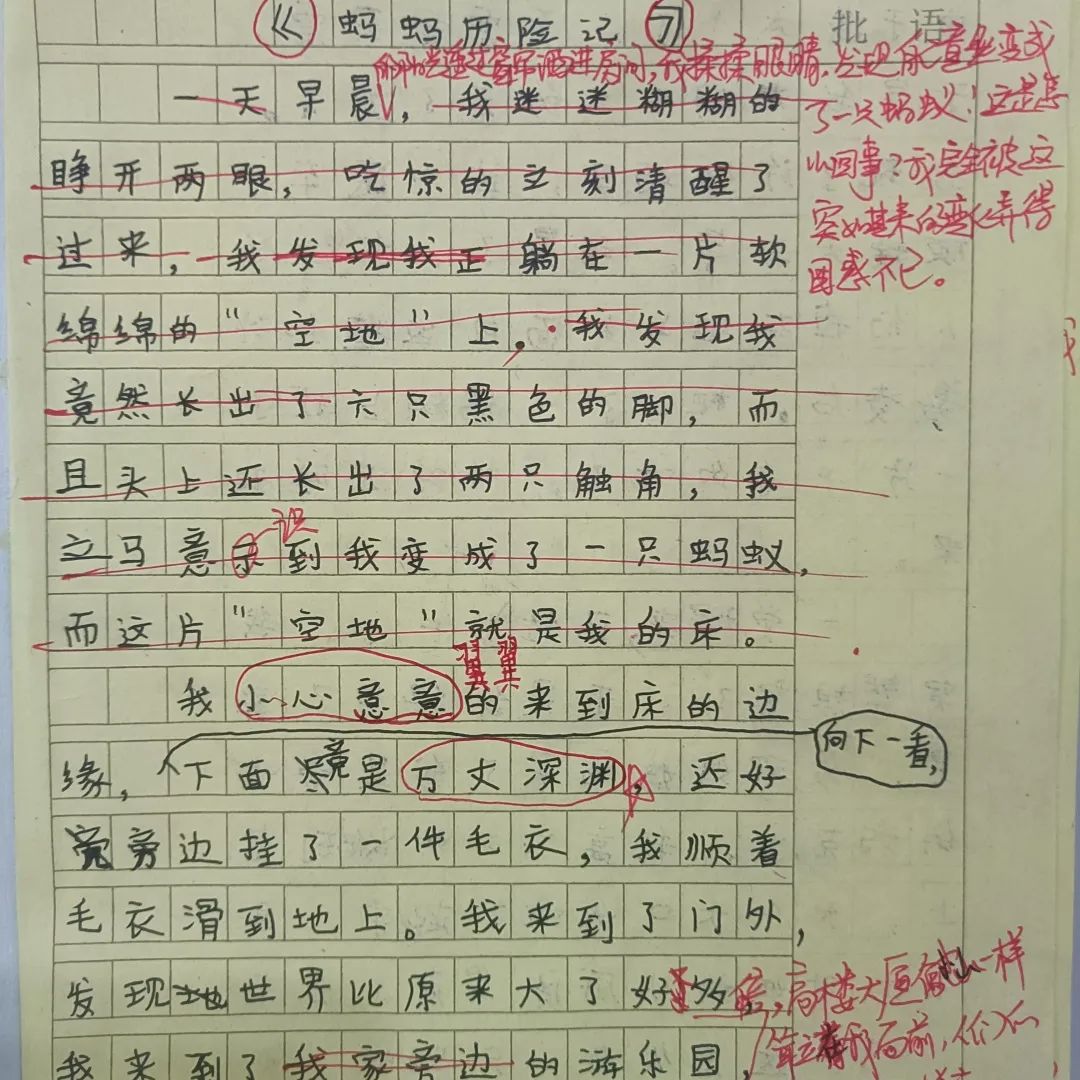 《蚂蚂历险记》
批语
一天早晨,我迷迷糊糊的
睁开两眼,吃惊的立刻清醒了
过来,我发现我正躺在一片软
绵绵的"空地"上.我发现我
竟然长出了六只黑色的脚,而
且头上还长出了两只触角,我
立马意示到我变成了一只蚂蚁,
而这片"空地"就是我的床。
我小心意意的来到床的边
缘,下面竟是万丈深渊,还好
旁边挂了一件毛衣,我顺着
毛衣滑到地上。我来到了门外,
发现世界比原来大了好多
我来到了我家旁边的游乐园,
透过窗帘洒进房间,我揉揉眼睛,发现自己竟然变成
了一只蚂蚁!这是怎
么回事?我完全被这
突如其来的变化弄得
困惑不已。
识
翼翼
向下一看,
倍,高楼大厦像山一样
耸立在我面前,